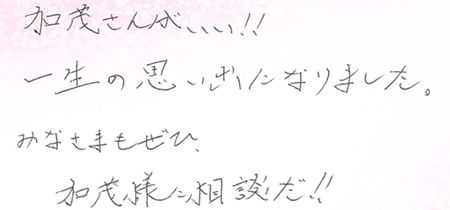 加茂さんがいい!!
一生の思い出になりました。
みなさまもぜひ、
加茂様に相談だ!!